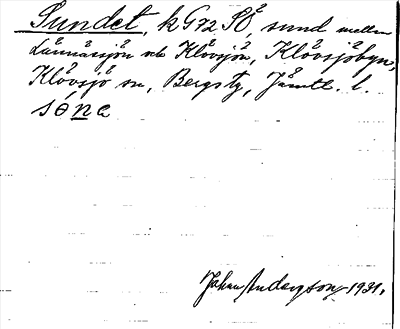 Sundet, k G72 SÖ, sund mellan
Lännässjön och Klövsjön, Klövsjöbyn,
Klövsjö sn, Bergs tg, Jämtl. l.
söne
Johan Anderson 1931.